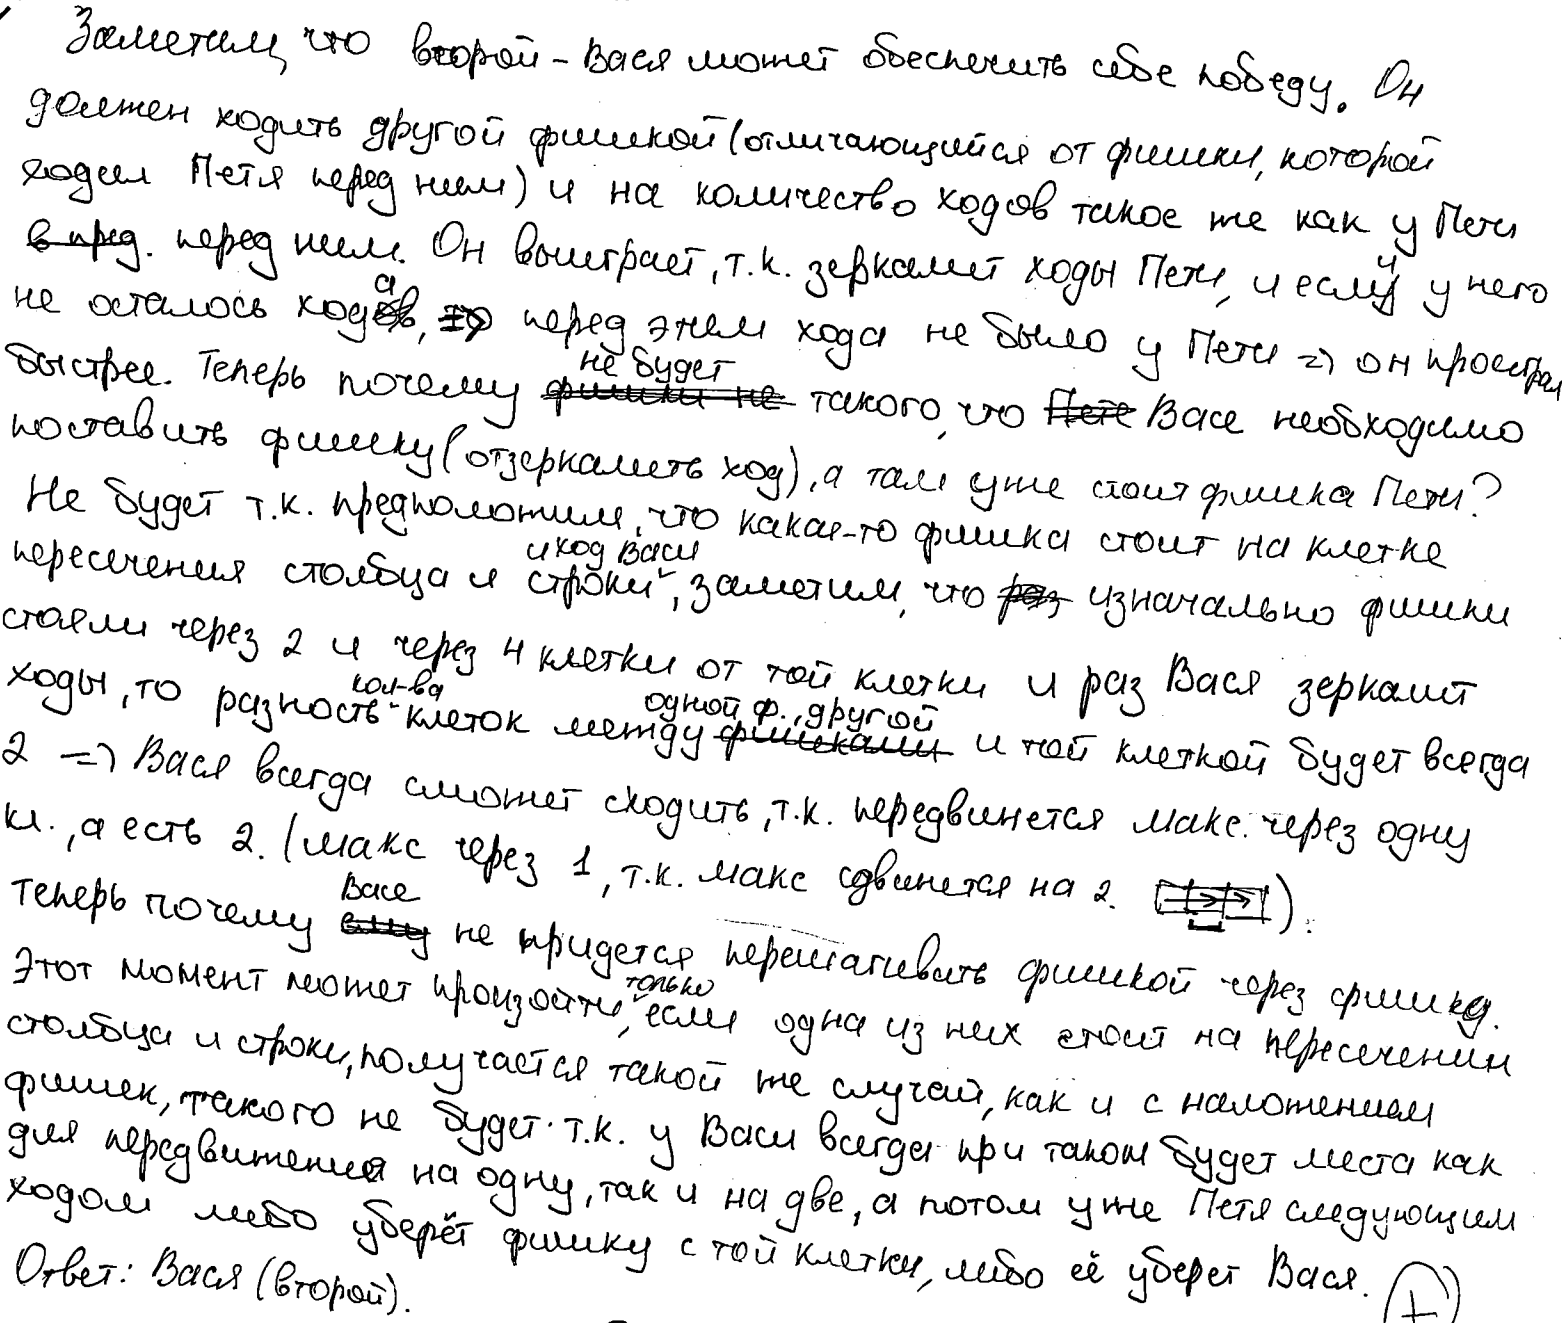 Заметим, что второй - Вася может обеспечить себе победу. Он
должен ходить другой фишкой (отличающийся от фишки, которой
ходил Петя перед ним) и на количество ходов такое же как у Пети
в пред. перед ним. Он выиграет, т.к. зеркалит ходы Пети, и если у него
не осталось хода, то перед этим хода не было у Пети => он проиграл
быстрее. Теперь почему не будет такого, что Пете Васе необходимо
поставить фишку (отзеркалить ход), а там уже стоит фишка Пети?
Не будет т.к. предположим, что какая-то фишка стоит на клетке
пересечения столбца и строки и ход Васи, заметим, что раз изначально фишки
стояли через 2 и через 4 клетки от той клетки и раз Вася зеркалит
ходы, то разность кол-ва клеток между одной ф., другой фишками и той клеткой будет всегда
2 => Вася всегда сможет сходить, т.к. передвинется макс. через одну
кл., а есть 2. (макс через 1, т.к. макс сдвинется на 2.).
Теперь почему Васе ему не придется перешагивать фишкой через фишку.
Этот момент может произойти только, если одна из них стоит на пересечении
столбца и строки, получается такой же случай, как и с наложением
фишек, такого не будет т.к. у Васи всегда при таком будет места как
для передвижения на одну, так и на две, а потом уже Петя следующим
ходом либо уберёт фишку с той клетки, либо её уберет Вася.
Ответ: Вася (второй).
+